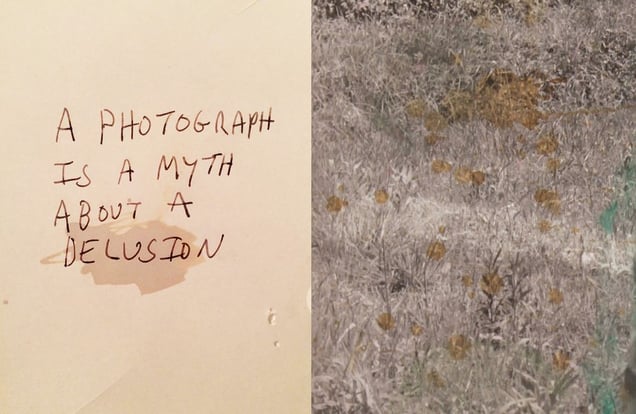 A PHOTOGRAPH
IS A MYTH
ABOUT A
DELUSION